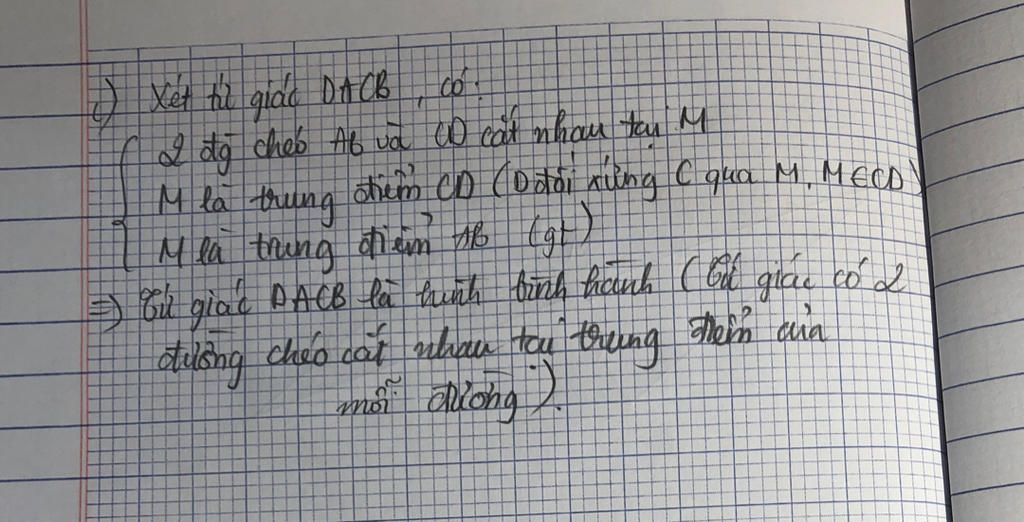 c) Xét tứ giác DACB, có:
2 đg chéo AB và CD cắt nhau tại M
M là trung điểm CD (D đối xứng C qua M, M∈CD)
M là trung điểm AB (gt)
=> Tứ giác DACB là hình bình hành (Tứ giác có 2
đường chéo cắt nhau tại trung điểm của
mỗi đường).